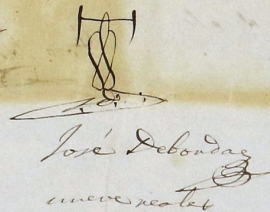 José Debordae
nueve reales